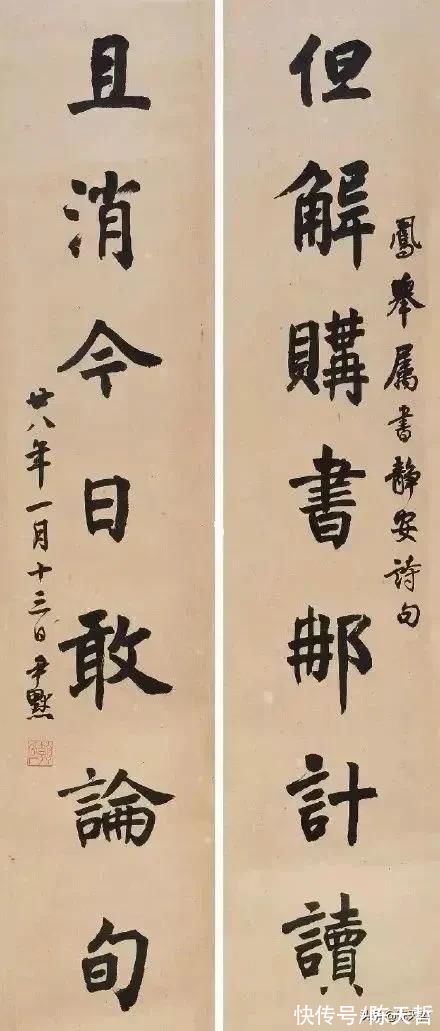 鳳舉属書静安詩句
但解購書那計讀
且消今日敢論旬
廿八年一月十三日尹默
快传号/陈天哲